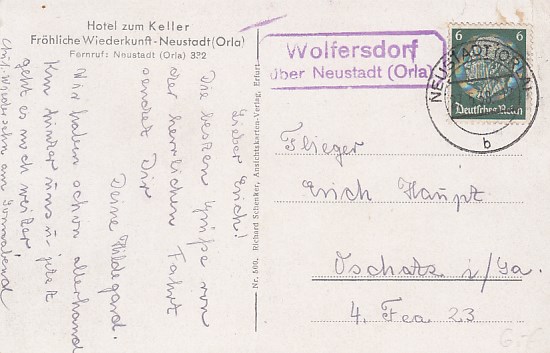 Hotel zum Keller
Fröhliche Wiederkunft-Neustadt(Orla)
Fernruf: Neustadt (Orla) 392
Lieber Erich!
Die besten Grüße von
der herrlichen Fahrt
sendet Dir
Deine Hildegard.
Wir haben schon allerhand
Km hinter uns u. jetzt
geht es noch weiter
Wiedersehn am Sonnabend
Nr. 500. Richard Schenker, Ansichtskarten-Verlag, Erfurt
Wolfersdorf
über Neustadt (Orla)
6 6
Deutsches Reich
NEUSTADT (ORLA)
b
Flieger
Erich Haupt
Oschatz i/Sa.
4. Fea 23